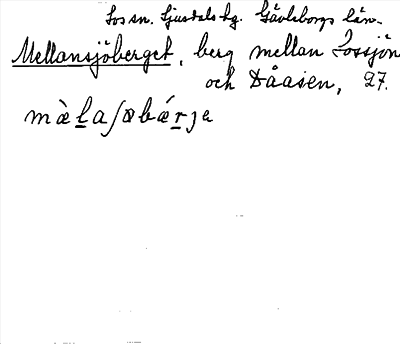 Los sn. Ljusdals tg. Gävleborgs län.
Mellansjöberget, berg mellan Lossjön
och Dåasen, 27.
mæ̀l̠aʃøbǽr̠ɟe